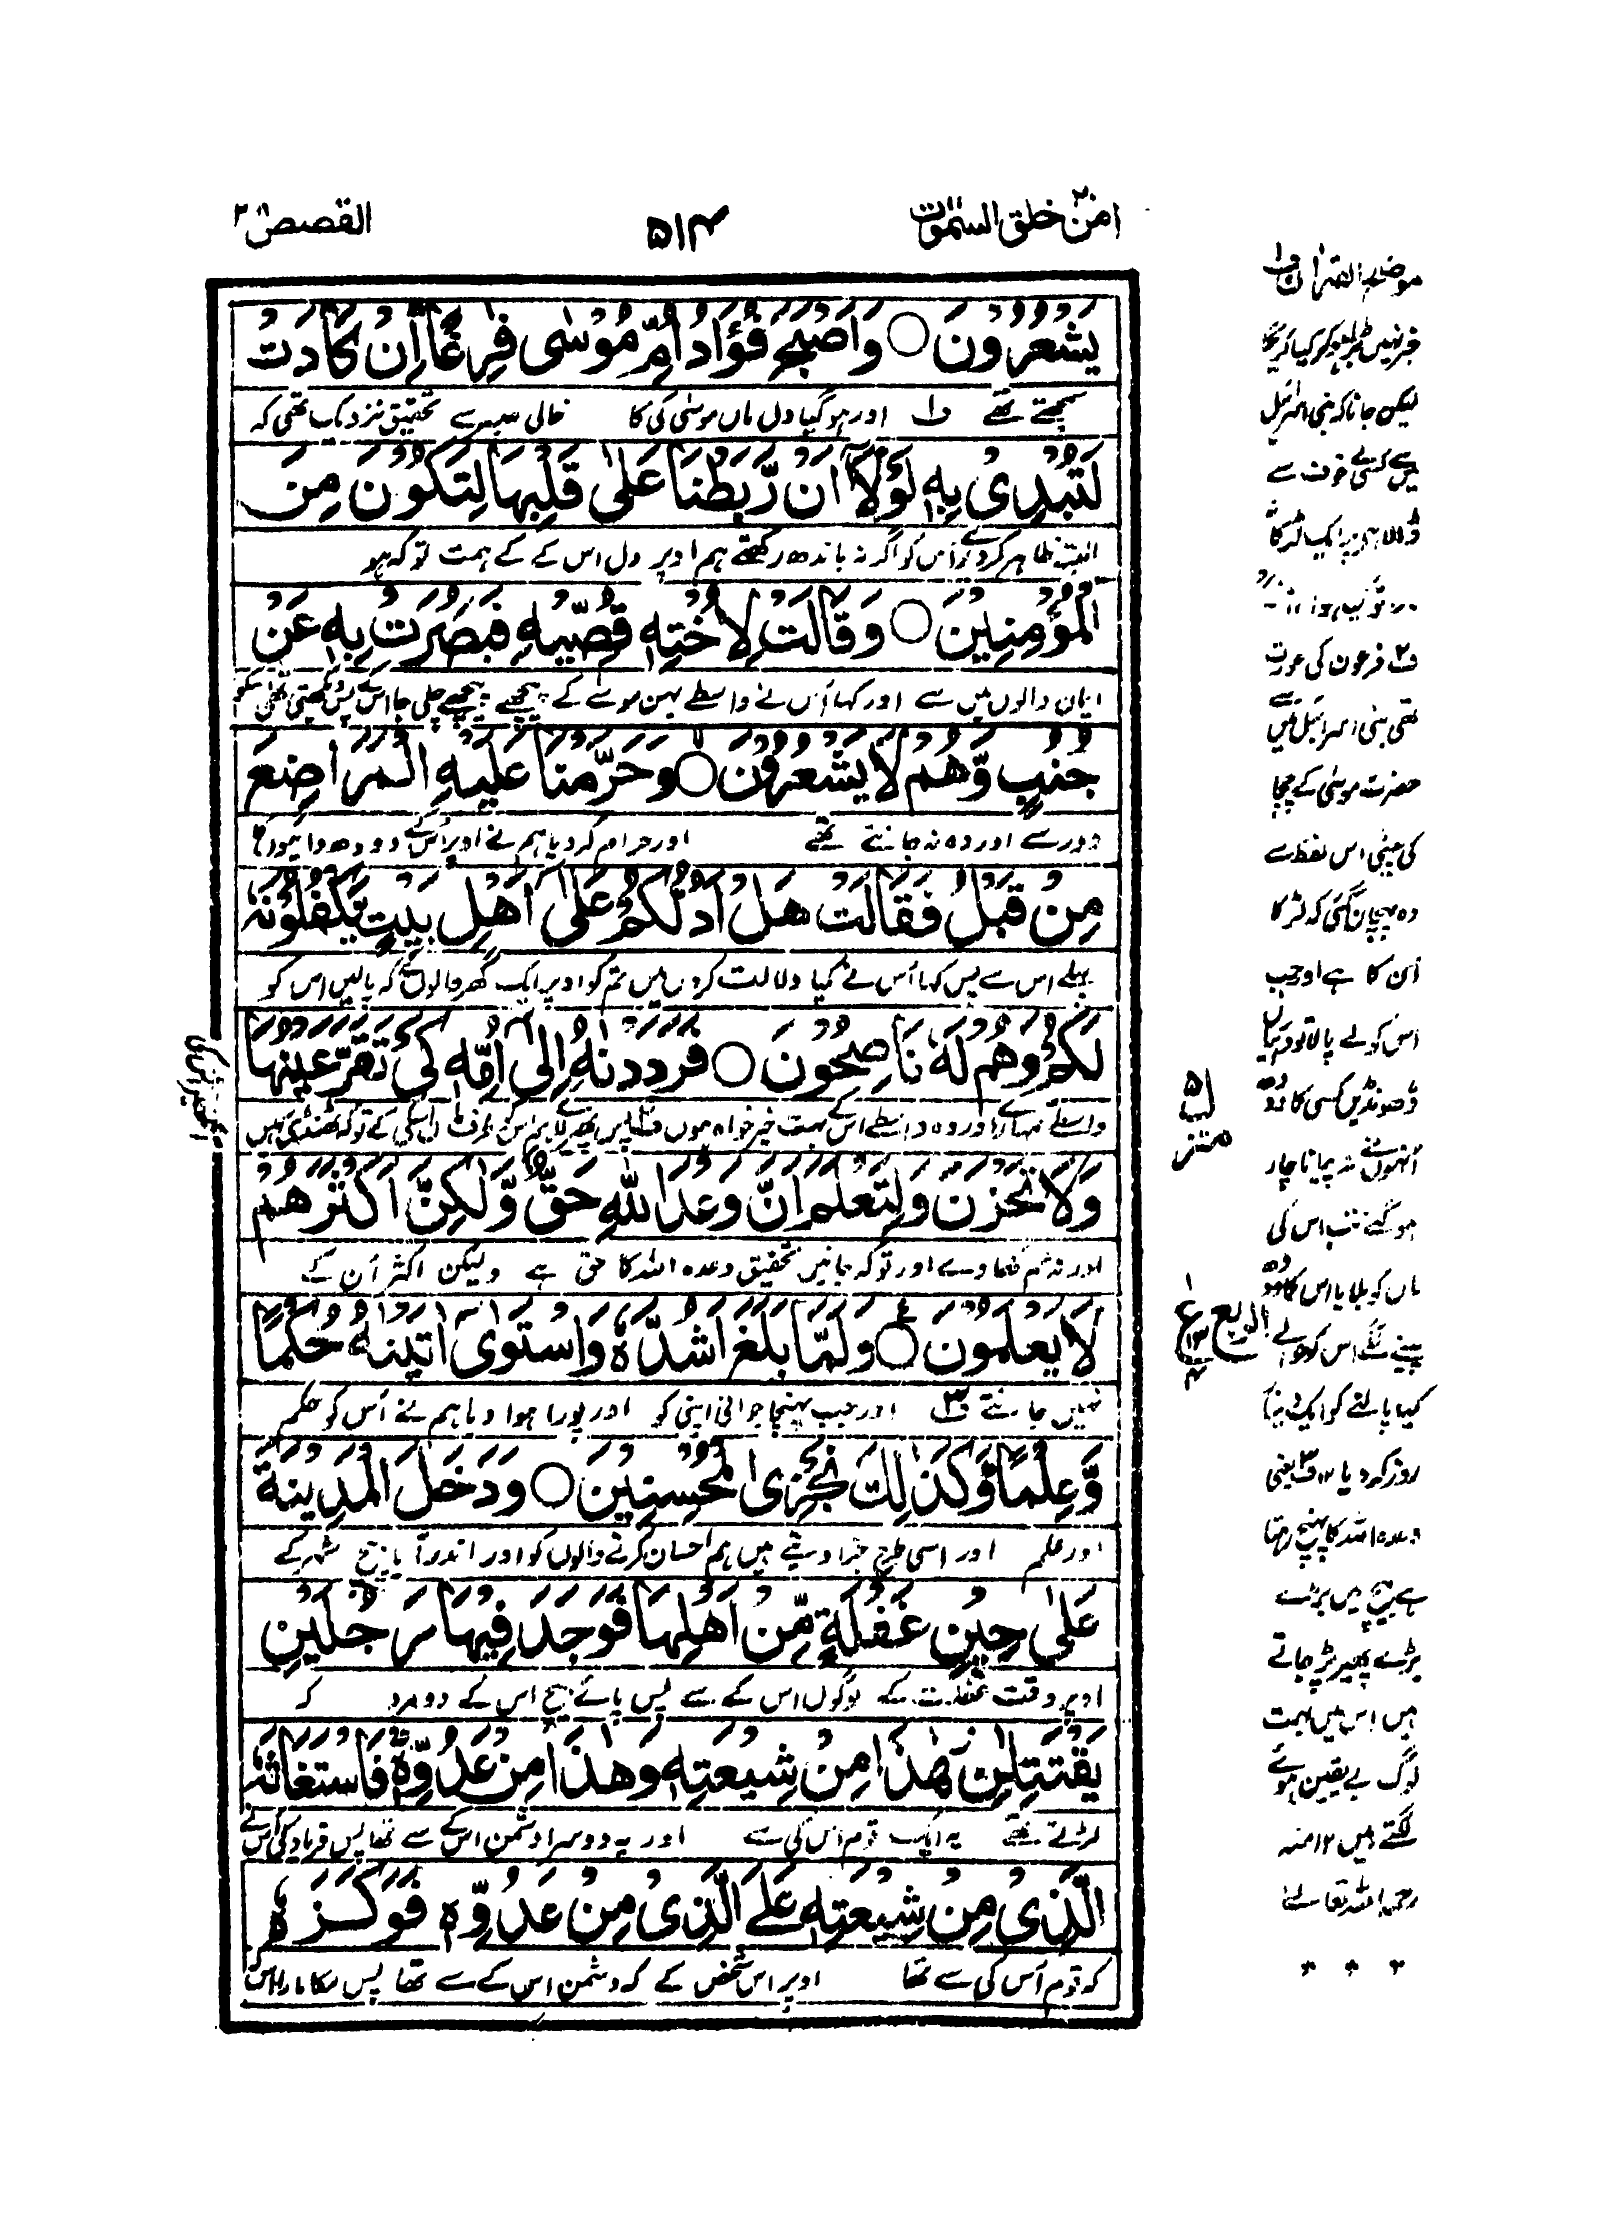 امن خلق السمٰوٰت ٢٠
٥١٤
القصص ٢٨
يَشْعُرُوْنَ ○ وَاَصْبَحَ فُؤَادُ اُمِّ مُوْسٰى فٰرِغًا اِنْ كَادَتْ
سمجھتے تھے ف١ اور ہو گیا دل ماں موسیٰ کی کا خالی صبر سے تحقیق نزدیک تھی کہ
لَتُبْدِىْ بِهٖ لَوْلَاۤ اَنْ رَّبَطْنَا عَلٰى قَلْبِهَا لِتَكُوْنَ مِنَ
البتہ ظاہر کر دے اُس کو اگر نہ باندھ رکھتے ہم اوپر دل اس کے کے ہمت تو کہ ہو
الْمُؤْمِنِيْنَ ○ وَقَالَتْ لِاُخْتِهٖ قُصِّيْهِ فَبَصُرَتْ بِهٖ عَنْ
ایمان والوں میں سے اور کہا اُس نے واسطے بہن موسے کے پیچھے پیچھے چلی جا اس کے پس دیکھتی تھی اس کو
جُنُبٍ وَّهُمْ لَا يَشْعُرُوْنَ ○ وَحَرَّمْنَا عَلَيْهِ الْمَرَاضِعَ
دور سے اور وہ نہ جانتے تھے اور حرام کر دیا ہم نے اوپر اُس کے دودھ
مِنْ قَبْلُ فَقَالَتْ هَلْ اَدُلُّكُمْ عَلٰۤى اَهْلِ بَيْتٍ يَّكْفُلُوْنَهٗ
پہلے اس سے پس کہا اُس نے کیا دلالت کروں میں تم کو اوپر ایک گھر والوں کے کہ پالیں اس کو
لَكُمْ وَهُمْ لَهٗ نَاصِحُوْنَ ○ فَرَدَدْنٰهُ اِلٰۤى اُمِّهٖ كَىْ تَقَرَّ عَيْنُهَا
واسطے تمہارے اور وہ واسطے اس کے بہت خیر خواہ ہوں ف٢ پس پھیر لائے ہم اس کو طرف ماں اسکی کے تو کہ ٹھنڈی رہیں
وَلَا تَحْزَنَ وَلِتَعْلَمَ اَنَّ وَعْدَ اللّٰهِ حَقٌّ وَّلٰكِنَّ اَكْثَرَهُمْ
اور نہ غم کھاوے اور تو کہ جانیں تحقیق وعدہ اللہ کا حق ہے ولیکن اکثر اُن کے
لَا يَعْلَمُوْنَ ○ وَلَمَّا بَلَغَ اَشُدَّهٗ وَاسْتَوٰۤى اٰتَيْنٰهُ حُكْمًا
نہیں جانتے ف٣ اور جب پہنچا جوانی اپنی کو اور پورا ہوا دیا ہم نے اُس کو حکم
وَّعِلْمًا وَكَذٰلِكَ نَجْزِى الْمُحْسِنِيْنَ ○ وَدَخَلَ الْمَدِيْنَةَ
اور علم اور اسی طرح جزا دیتے ہیں ہم احسان کرنے والوں کو اور اندر آیا بیچ شہر کے
عَلٰى حِيْنِ غَفْلَةٍ مِّنْ اَهْلِهَا فَوَجَدَ فِيْهَا رَجُلَيْنِ
اوپر وقت غفلت کے لوگوں اس کے سے پس پائے بیچ اس کے دو مرد کہ
يَقْتَتِلٰنِ هٰذَا مِنْ شِيْعَتِهٖ وَهٰذَا مِنْ عَدُوِّهٖ فَاسْتَغَاثَهُ
لڑتے تھے یہ ایک قوم اُس کی سے اور یہ دوسرا دشمن اس کے سے تھا پس فریاد کی اُس نے
الَّذِىْ مِنْ شِيْعَتِهٖ عَلَى الَّذِىْ مِنْ عَدُوِّهٖ فَوَكَزَهٗ
کہ قوم اُس کی سے تھا اوپر اس شخص کے کہ دشمن اس کے سے تھا پس مکا مارا اُس کو
موضح القرآن ف١
لیکن جانا کہ بنی اسرائیل
میں کسی نے خوف سے
ڈالا ہے پر ایک لڑکا
ف٢ فرعون کی عورت
تھی بنی اسرائیل میں سے
حضرت موسیٰ کے چچا
کی بیٹی اس لفظ سے
وہ پہچان گئی کہ لڑکا
اُن کا ہے اور جب
ڈھونڈیں کسی کا دودھ
اُنہوں نے نہ پیا ناچار
ہو گئے تب اس کی
ماں کو بلایا اس کا دودھ
پینے لگے اس کو حوالے
کیا پالنے کو ایک
روز کر دیا ١٢ ف٣ یعنی
وعدہ اللہ کا پہنچ رہتا
ہے بیچ میں بڑے
بڑے پھیر پڑ جاتے
ہیں اس میں بہت
لوگ بے یقین ہونے
لگتے ہیں ١٢ منہ
رحمہ اللہ تعالیٰ
الربع
منزل